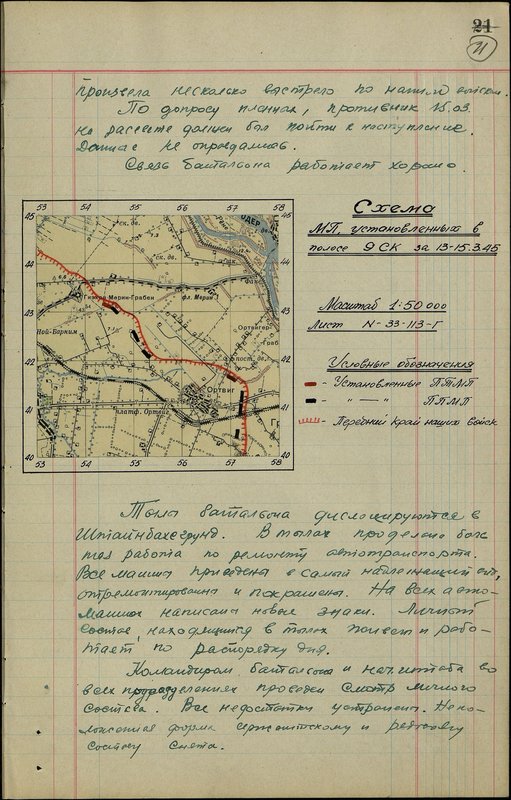 21
21
произвела несколько выстрело по нашим войскам.
По допросу пленных, противник 15.03.
на рассвете должен был пойти в наступление.
Данные не оправдались.
Связь батальона работает хорошо.
Схема
МП, установленных в
полосе 9 СК за 13-15.3.45
Масштаб 1:50 000
Лист N-33-113-Г
Условные обозначения
- Установленные ПТМП
- " — " ППМП
- Передний край наших войск
53 54 55 56 57 58
45
ОДЕР
44
Мерин-Грабен
фл. Мерин
43
Ной-Барним
Ортвигер
42
Ортвиг
41
платф. Ортвиг
40
53 54 55 56 57 58
Тылы батальона дислоцируются в
Штайнбахсгрунд. В тылах проделана боль
шая работа по ремонту автотранспорта.
Все машины приведены в самый надлежащий вид,
отремонтированы и покрашены. На всех авто-
машинах написаны новые знаки. Личный
состав, находящийся в тылах живет и рабо-
тает по распорядку дня.
Командиром батальона и нач. штаба во
всех подразделениях проведен смотр личного
состава. Все недостатки устранены. Непо-
ложенная форма сержантскому и рядовому
составу снята.